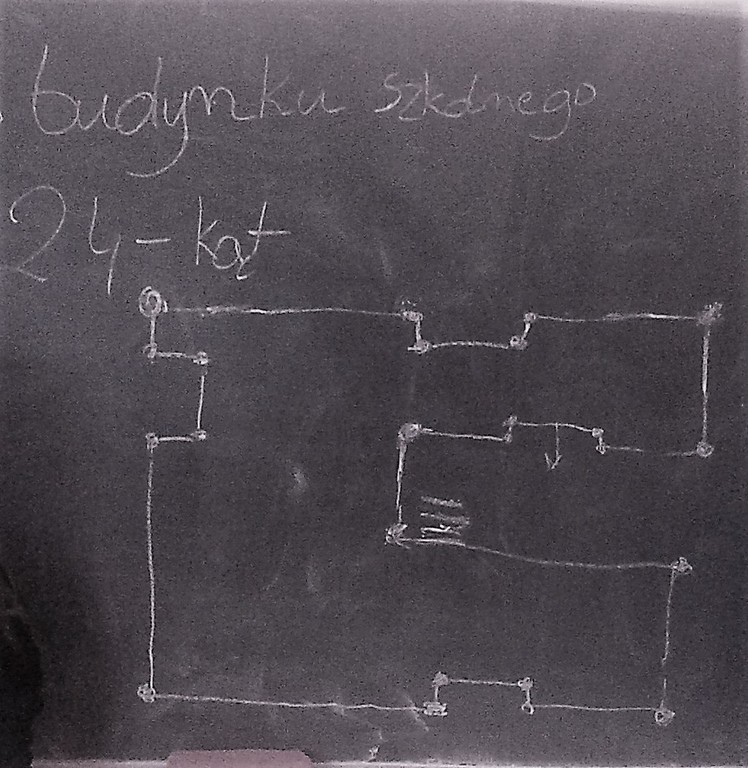 budynku szkolnego
24-kąt